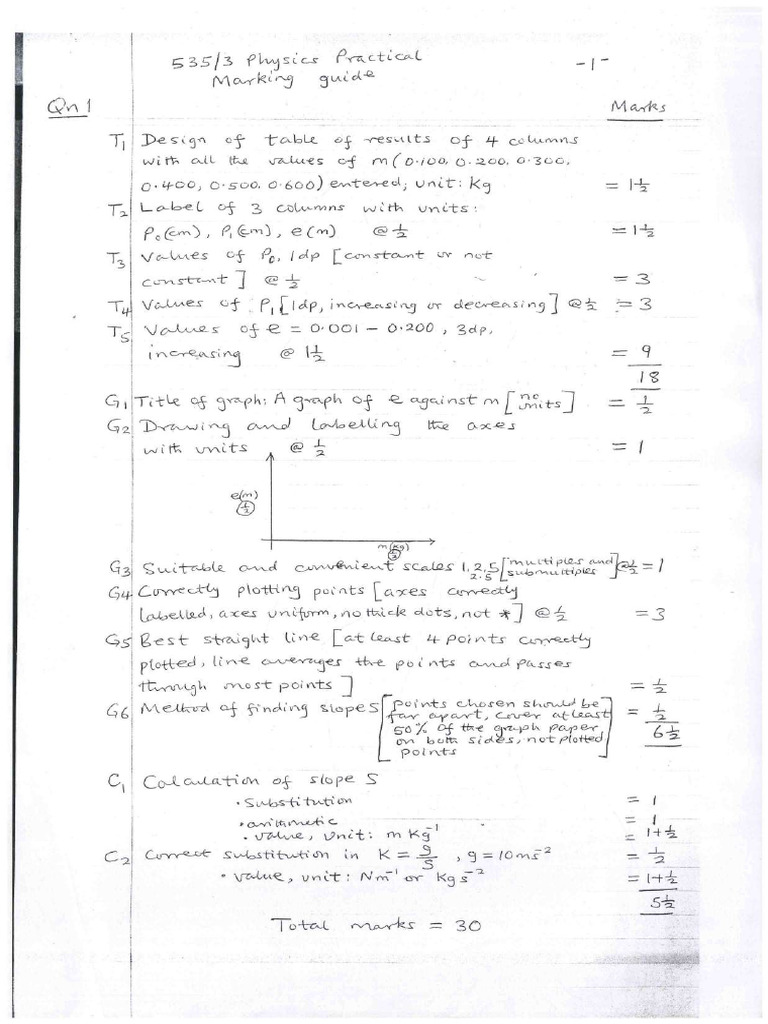 535/3 Physics Practical -1-
Marking guide
Qn 1 Marks
T1 Design of table of results of 4 columns
with all the values of m(0.100, 0.200, 0.300,
0.400, 0.500, 0.600) entered; unit: Kg = 1½
T2 Label of 3 columns with units:
P₀(cm), P₁(cm), e(m) @ ½ = 1½
T3 Values of P₀, 1dp [constant or not
constant] @ ½ = 3
T4 Values of P₁ [1dp, increasing or decreasing] @ ½ = 3
T5 Values of e = 0.001 – 0.200, 3dp,
increasing @ 1½ = 9
18
G1 Title of graph: A graph of e against m [no units] = ½
G2 Drawing and labelling the axes
with units @ ½ = 1
e(m)
½
m(kg)
½
G3 Suitable and convenient scales 1, 2, 5, 2.5 [multiples and submultiples] @ ½ = 1
G4 Correctly plotting points [axes correctly
labelled, axes uniform, no thick dots, not *] @ ½ = 3
G5 Best straight line [at least 4 points correctly
plotted, line averages the points and passes
through most points] = ½
G6 Method of finding slope S [points chosen should be = ½
far apart, cover at least
50% of the graph paper, 6½
on both sides, not plotted
points]
C1 Calculation of slope S
• Substitution = 1
• arithmetic = 1
• value, unit: m Kg⁻¹ = 1+½
C2 Correct substitution in K = g/S, g = 10ms⁻² = ½
• value, unit: Nm⁻¹ or Kgs⁻² = 1+½
5½
Total marks = 30